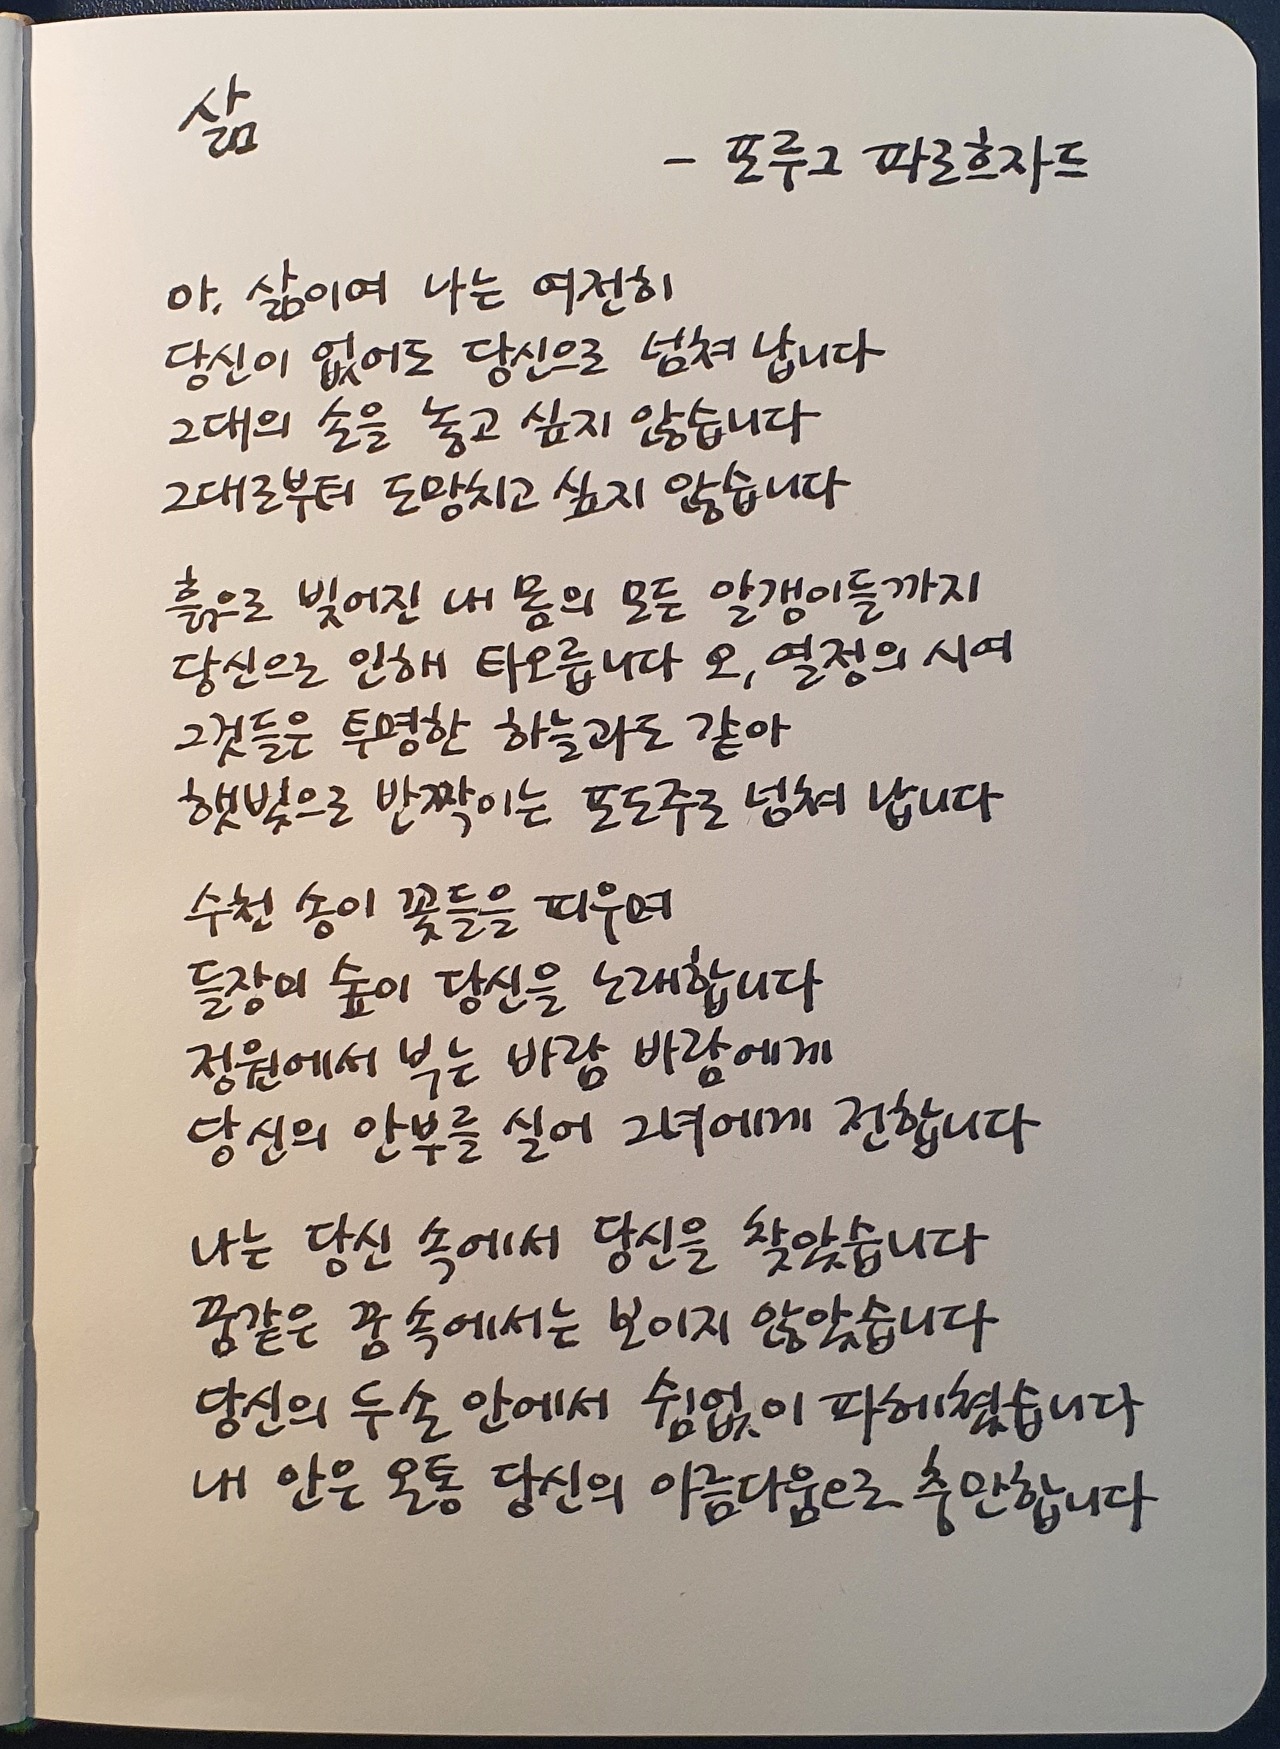 삶
- 포루그 파로흐자드
아, 삶이여 나는 여전히
당신이 없어도 당신으로 넘쳐 납니다
그대의 손을 놓고 싶지 않습니다
그대로부터 도망치고 싶지 않습니다
흙으로 빚어진 내 몸의 모든 알갱이들까지
당신으로 인해 타오릅니다 오, 열정의 시여
그것들은 투명한 하늘과도 같아
햇빛으로 반짝이는 포도주로 넘쳐 납니다
수천 송이 꽃들을 피우며
들장미 숲이 당신을 노래합니다
정원에서 부는 바람 바람에게
당신의 안부를 실어 그녀에게 전합니다
나는 당신 속에서 당신을 찾았습니다
꿈같은 꿈 속에서는 보이지 않았습니다
당신의 두 손 안에서 쉼없이 파헤쳤습니다
내 안은 온통 당신의 아름다움으로 충만합니다